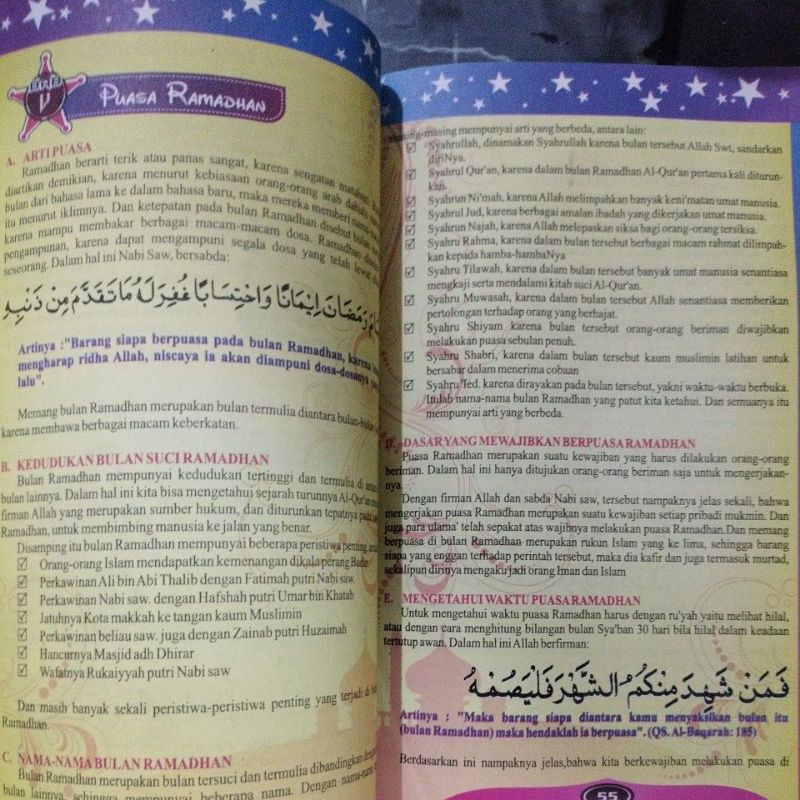 BAB
V
PUASA RAMADHAN
A. ARTI PUASA
Ramadhan berarti terik atau panas sangat, karena sengatan matahari.
diartikan demikian, karena menurut kebiasaan orang-orang arab dahulu
bulan dari bahasa lama ke dalam bahasa baru, maka mereka memberi nama
itu menurut iklimnya. Dan ketepatan pada bulan Ramadhan disebut bulan
karena mampu membakar berbagai macam-macam dosa. Ramadhan
pengampunan, karena dapat mengampuni segala dosa yang telah lewat
seseorang. Dalam hal ini Nabi Saw, bersabda:
رَمَضَانَ اِيْمَانًا وَاحْتِسَابًا غُفِرَ لَهُ مَا تَقَدَّمَ مِنْ ذَنْبِهِ
Artinya :"Barang siapa berpuasa pada bulan Ramadhan, karena
mengharap ridha Allah, niscaya ia akan diampuni dosa-dosanya yang
lalu".
Memang bulan Ramadhan merupakan bulan termulia diantara bulan-bulan
karena membawa berbagai macam keberkatan.
B. KEDUDUKAN BULAN SUCI RAMADHAN
Bulan Ramadhan mempunyai kedudukan tertinggi dan termulia di antara
bulan lainnya. Dalam hal ini kita bisa mengetahui sejarah turunnya Al-Qur'an
firman Allah yang merupakan sumber hukum, dan diturunkan tepatnya pada
Ramadhan, untuk membimbing manusia ke jalan yang benar.
Disamping itu bulan Ramadhan mempunyai beberapa peristiwa penting,
Orang-orang Islam mendapatkan kemenangan dikala perang Badar
Perkawinan Ali bin Abi Thalib dengan Fatimah putri Nabi saw.
Perkawinan Nabi saw. dengan Hafshah putri Umar bin Khatab
Jatuhnya Kota makkah ke tangan kaum Muslimin
Perkawinan beliau saw. juga dengan Zainab putri Huzaimah
Hancurnya Masjid adh Dhirar
Wafatnya Rukaiyyah putri Nabi saw
Dan masih banyak sekali peristiwa-peristiwa penting yang terjadi di
Ramadhan.
C. NAMA-NAMA BULAN RAMADHAN
Bulan Ramadhan merupakan bulan tersuci dan termulia dibandingkan dengan
bulan lainnya, sehingga mempunyai beberapa nama. Dengan nama-nama
masing-masing mempunyai arti yang berbeda, antara lain:
Syahrullah, dinamakan Syahrullah karena bulan tersebut Allah Swt, sandarkan
diriNya.
Syahrul Qur'an, karena dalam bulan Ramadhan Al-Qur'an pertama kali diturun-
kan.
Syahrun Ni'mah, karena Allah melimpahkan banyak keni'matan umat manusia.
Syahrul Jud, karena berbagai amalan ibadah yang dikerjakan umat manusia.
Syahrun Najah, karena Allah melepaskan siksa bagi orang-orang tersiksa.
Syahru Rahma, karena dalam bulan tersebut berbagai macam rahmat dilimpah-
kan kepada hamba-hambaNya
Syahru Tilawah, karena dalam bulan tersebut banyak umat manusia senantiasa
mengkaji serta mendalami kitab suci Al-Qur'an.
Syahru Muwasah, karena dalam bulan tersebut Allah senantiasa memberikan
pertolongan terhadap orang yang berhajat.
Syahru Shiyam karena bulan tersebut orang-orang beriman diwajibkan
melakukan puasa sebulan penuh.
Syahru Shabri, karena dalam bulan tersebut kaum muslimin latihan untuk
bersabar dalam menerima cobaan
Syahru 'Ied, karena dirayakan pada bulan tersebut, yakni waktu-waktu berbuka.
Itulah nama-nama bulan Ramadhan yang patut kita ketahui. Dan semuanya itu
mempunyai arti yang berbeda.
D. DASAR YANG MEWAJIBKAN BERPUASA RAMADHAN
Puasa Ramadhan merupakan suatu kewajiban yang harus dilakukan orang-orang
beriman. Dalam hal ini hanya ditujukan orang-orang beriman saja untuk mengerjakan-
nya.
Dengan firman Allah dan sabda Nabi saw, tersebut nampaknya jelas sekali, bahwa
mengerjakan puasa Ramadhan merupakan suatu kewajiban setiap pribadi mukmin. Dan
juga para ulama' telah sepakat atas wajibnya melakukan puasa Ramadhan.Dan memang
berpuasa di bulan Ramadhan merupakan rukun Islam yang ke lima, sehingga barang
siapa yang enggan terhadap perintah tersebut, maka dia kafir dan juga termasuk murtad,
sekalipun dirinya mengaku jadi orang Iman dan Islam
E. MENGETAHUI WAKTU PUASA RAMADHAN
Untuk mengetahui waktu puasa Ramadhan harus dengan ru'yah yaitu melihat hilal,
atau dengan cara menghitung bilangan bulan Sya'ban 30 hari bila hilal dalam keadaan
tertutup awan. Dalam hal ini Allah berfirman:
فَمَنْ شَهِدَ مِنْكُمُ الشَّهْرَ فَلْيَصُمْهُ
Artinya : "Maka barang siapa diantara kamu menyaksikan bulan itu
(bulan Ramadhan) maka hendaklah ia berpuasa". (QS. Al-Baqarah: 185)
Berdasarkan ini nampaknya jelas,bahwa kita berkewajiban melakukan puasa di
55